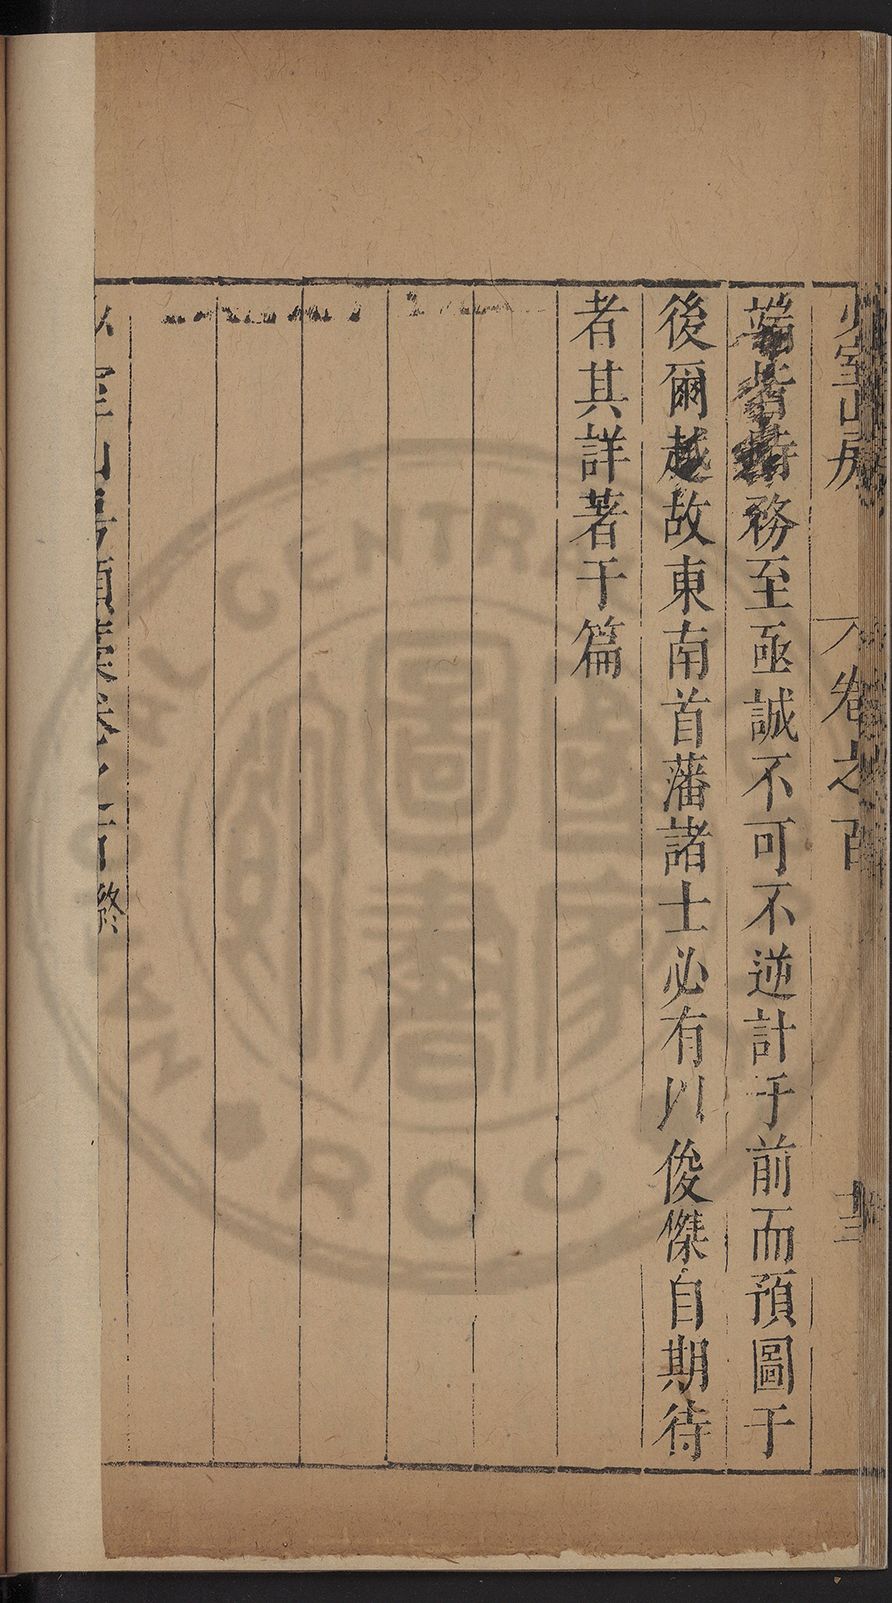 少室山房 卷之百 十三
端皆時務至亟誠不可不逆計于前而預圖于
後爾越故東南首藩諸士必有以俊傑自期待
者其詳著于篇
少室山房類藁卷之一百終
NATIONAL CENTRAL LIBRARY
國家圖書館